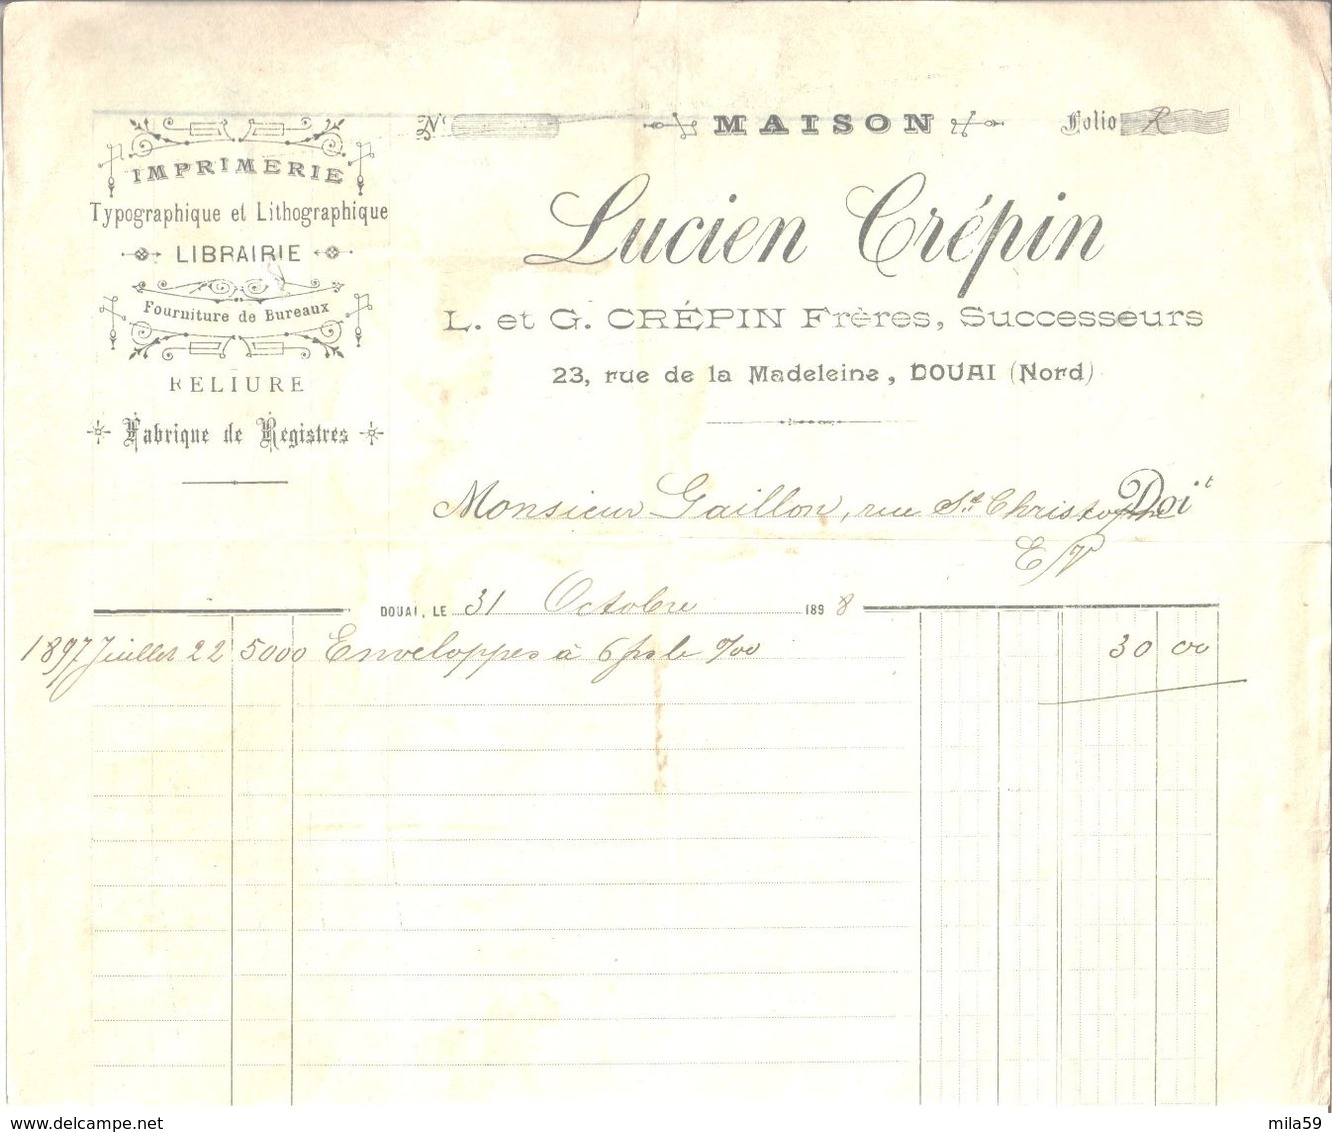 IMPRIMERIE
Typographique et Lithographique
LIBRAIRIE
Fourniture de Bureaux
RELIURE
Fabrique de Registres
N°
MAISON
Folio R
Lucien Crépin
L. et G. CRÉPIN Frères, Successeurs
23, rue de la Madeleine, DOUAI (Nord)
Monsieur Gaillon, rue St. Christophe Doit
E/V
DOUAI, LE 31 Octobre 1898
1897 Juillet 22 5000 Enveloppes à 6 frs le %00 30 00
www.delcampe.net
mila59